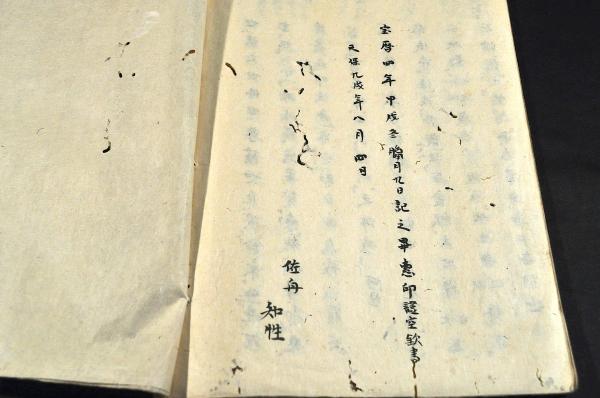 宝暦四年甲戌冬臈月九日記之畢 恵印謹空欽書
天保九戌年八月四日
佐舟
知性